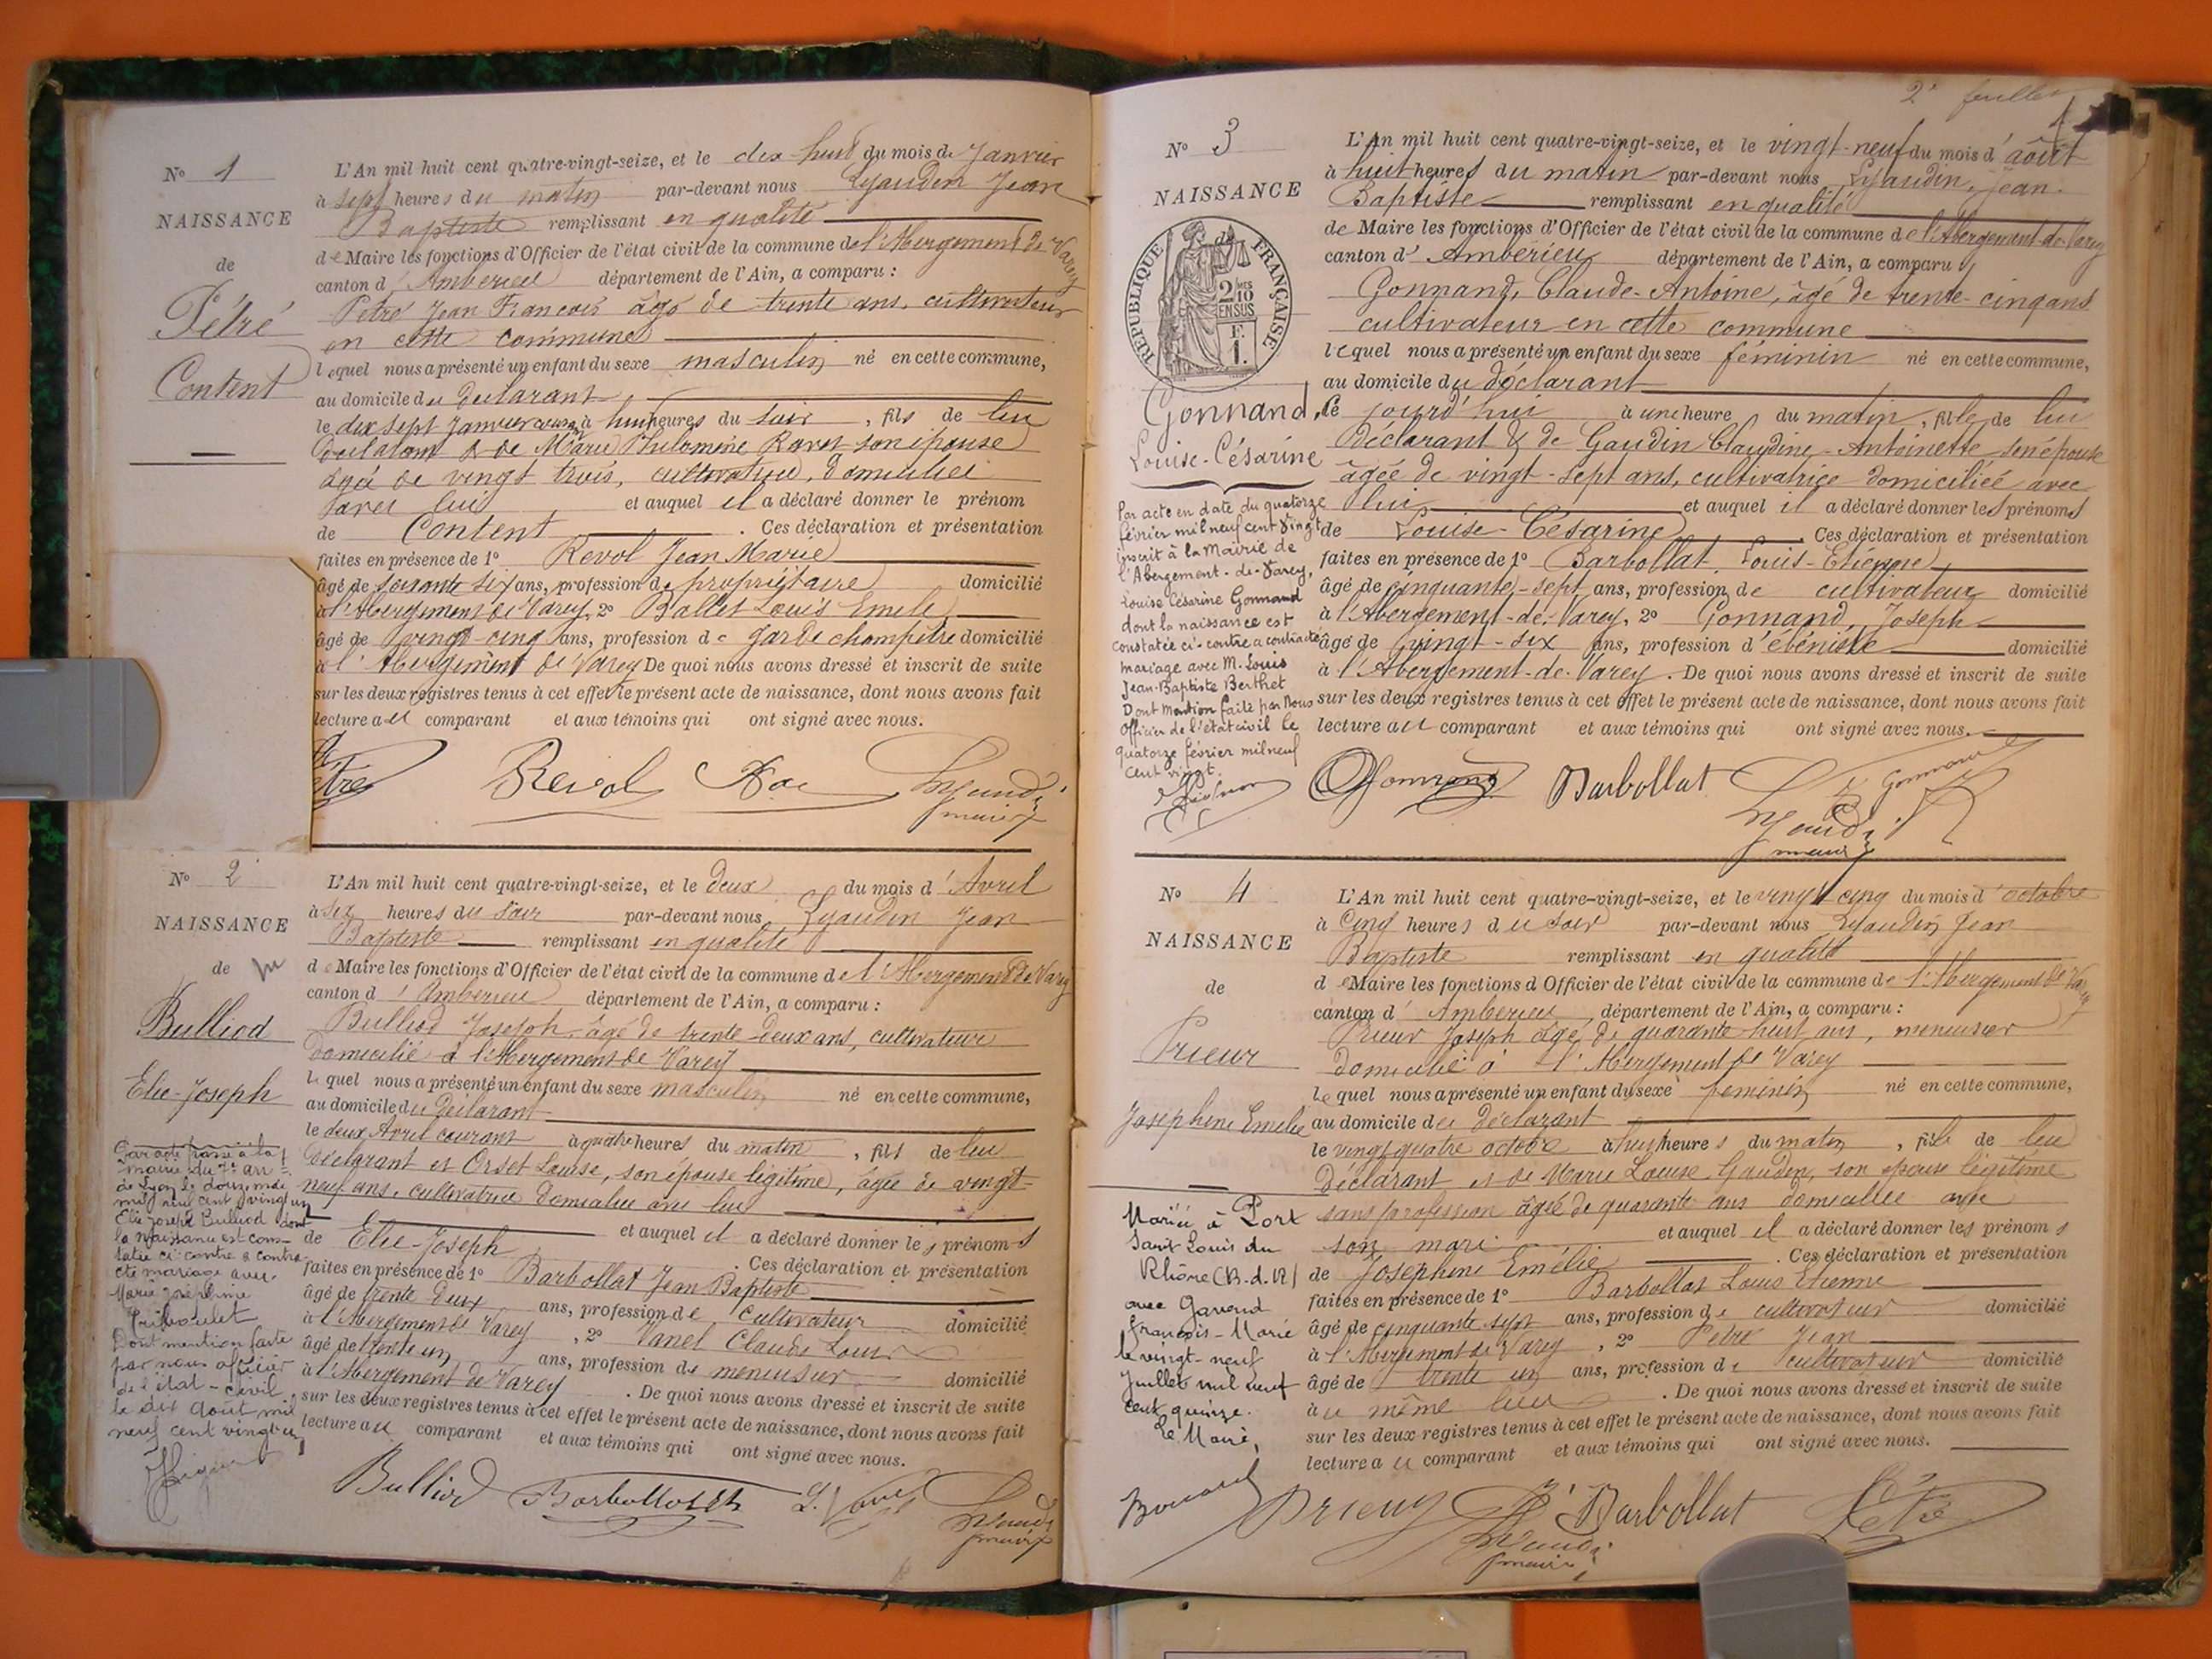 Nº 1
NAISSANCE
de
Pétré
Content
L'An mil huit cent quatre-vingt-seize, et le dix-huit du mois de Janvier
à sept heures du matin par-devant nous Lyaudin Jean
Baptiste remplissant en qualité
de Maire les fonctions d'Officier de l'état civil de la commune de l'Abergement de Varey
canton d'Ambérieu département de l'Ain, a comparu :
Pétré Jean François âgé de trente ans, cultivateur
en cette commune
lequel nous a présenté un enfant du sexe masculin né en cette commune,
au domicile du déclarant
le dix sept Janvier courant à huit heures du soir, fils de lui
déclarant & de Marie Philomène Ravet son épouse
âgée de vingt trois, cultivatrice, domiciliée
avec lui et auquel il a déclaré donner le prénom
de Content. Ces déclaration et présentation
faites en présence de 1º Revol Jean Marie
âgé de soixante six ans, profession de propriétaire domicilié
à l'Abergement de Varey, 2º Ballet Louis Emile
âgé de vingt-cinq ans, profession de garde champêtre domicilié
à l'Abergement de Varey De quoi nous avons dressé et inscrit de suite
sur les deux registres tenus à cet effet le présent acte de naissance, dont nous avons fait
lecture au comparant et aux témoins qui ont signé avec nous.
Revol
Lyaudin
maire
Nº 2
NAISSANCE
de
Bulliod
Elie-Joseph
L'An mil huit cent quatre-vingt-seize, et le deux du mois d'Avril
à six heures du soir par-devant nous Lyaudin Jean
Baptiste remplissant en qualité
de Maire les fonctions d'Officier de l'état civil de la commune de l'Abergement de Varey
canton d'Ambérieu département de l'Ain, a comparu :
Bulliod Joseph âgé de trente-deux ans, cultivateur
domicilié à l'Abergement de Varey
lequel nous a présenté un enfant du sexe masculin né en cette commune,
au domicile du déclarant
le deux Avril courant à quatre heures du matin, fils de lui
déclarant et Orset Louise, son épouse légitime, âgée de vingt-
neuf ans, cultivatrice domiciliée avec lui
et auquel il a déclaré donner les prénoms
de Elie-Joseph. Ces déclaration et présentation
faites en présence de 1º Barbollat Jean Baptiste
âgé de trente deux ans, profession de cultivateur domicilié
à l'Abergement de Varey, 2º Vanel Claude Louis
âgé de trente un ans, profession de menuisier domicilié
à l'Abergement de Varey. De quoi nous avons dressé et inscrit de suite
sur les deux registres tenus à cet effet le présent acte de naissance, dont nous avons fait
lecture au comparant et aux témoins qui ont signé avec nous.
Par acte passé à la
mairie du 7e arr
de Lyon le douze mai
mil neuf cent vingt un
Elie Joseph Bulliod dont
la naissance est cons-
tatée ci-contre a contra-
cté mariage avec
Marie Joséphine
Dont mention faite
par nous officier
de l'état-civil
le dix août mil
neuf cent vingt un
Bulliod Barbollat L. Vanel Lyaudin
maire
2e feuillet
Nº 3
NAISSANCE
RÉPUBLIQUE FRANÇAISE
2/10 EN SUS
F. 1.
Gonnand,
Louise-Césarine
L'An mil huit cent quatre-vingt-seize, et le vingt-neuf du mois d'août
à huit heures du matin par-devant nous Lyaudin, Jean
Baptiste remplissant en qualité
de Maire les fonctions d'Officier de l'état civil de la commune de l'Abergement-de-Varey
canton d'Ambérieu département de l'Ain, a comparu
Gonnand, Claude-Antoine, âgé de trente-cinq ans
cultivateur en cette commune
lequel nous a présenté un enfant du sexe féminin né en cette commune,
au domicile du déclarant
le jourd'hui à une heure du matin, fille de lui
déclarant & de Gaudin Claudine-Antoinette son épouse
âgée de vingt-sept ans, cultivatrice domiciliée avec
lui et auquel il a déclaré donner les prénoms
de Louise-Césarine Ces déclaration et présentation
faites en présence de 1º Barbollat, Louis-Etienne
âgé de cinquante-sept ans, profession de cultivateur domicilié
à l'Abergement-de-Varey, 2º Gonnand, Joseph
âgé de vingt-six ans, profession d'ébéniste domicilié
à l'Abergement-de-Varey. De quoi nous avons dressé et inscrit de suite
sur les deux registres tenus à cet effet le présent acte de naissance, dont nous avons fait
lecture au comparant et aux témoins qui ont signé avec nous.
Par acte en date du quatorze
février mil neuf cent vingt
inscrit à la Mairie de
l'Abergement-de-Varey,
Louise Césarine Gonnand
dont la naissance est
constatée ci-contre a contracté
mariage avec M. Louis
Jean-Baptiste Berthet
Dont mention faite par Nous
Officier de l'état civil le
quatorze février mil neuf
cent vingt.
Gonnand Barbollat J. Gonnand
Lyaudin
maire
Nº 4
NAISSANCE
de
Prieur
Joséphine Emélie
L'An mil huit cent quatre-vingt-seize, et le vingt cinq du mois d'octobre
à cinq heures du soir par-devant nous Lyaudin Jean
Baptiste remplissant en qualité
de Maire les fonctions d'Officier de l'état civil de la commune de l'Abergement de Varey
canton d'Ambérieu, département de l'Ain, a comparu :
Prieur Joseph âgé de quarante huit ans, menuisier
domicilié à l'Abergement de Varey
lequel nous a présenté un enfant du sexe féminin né en cette commune,
au domicile du déclarant
le vingt quatre octobre à huit heures du matin, fille de lui
déclarant et de Marie Louise Gaudin, son épouse légitime
sans profession âgée de quarante ans domiciliée avec
son mari et auquel il a déclaré donner les prénoms
de Joséphine Emélie. Ces déclaration et présentation
faites en présence de 1º Barbollat Louis Etienne
âgé de cinquante sept ans, profession de cultivateur domicilié
à l'Abergement de Varey, 2º Pétré Jean
âgé de trente un ans, profession de cultivateur domicilié
au même lieu. De quoi nous avons dressé et inscrit de suite
sur les deux registres tenus à cet effet le présent acte de naissance, dont nous avons fait
lecture au comparant et aux témoins qui ont signé avec nous.
Mariée à Port
Saint Louis du
Rhône (B.d.R)
avec Gavend
François-Marie
le vingt-neuf
Juillet mil neuf
cent quinze.
Le Maire,
Prieur Barbollat Pétré
Lyaudin
maire